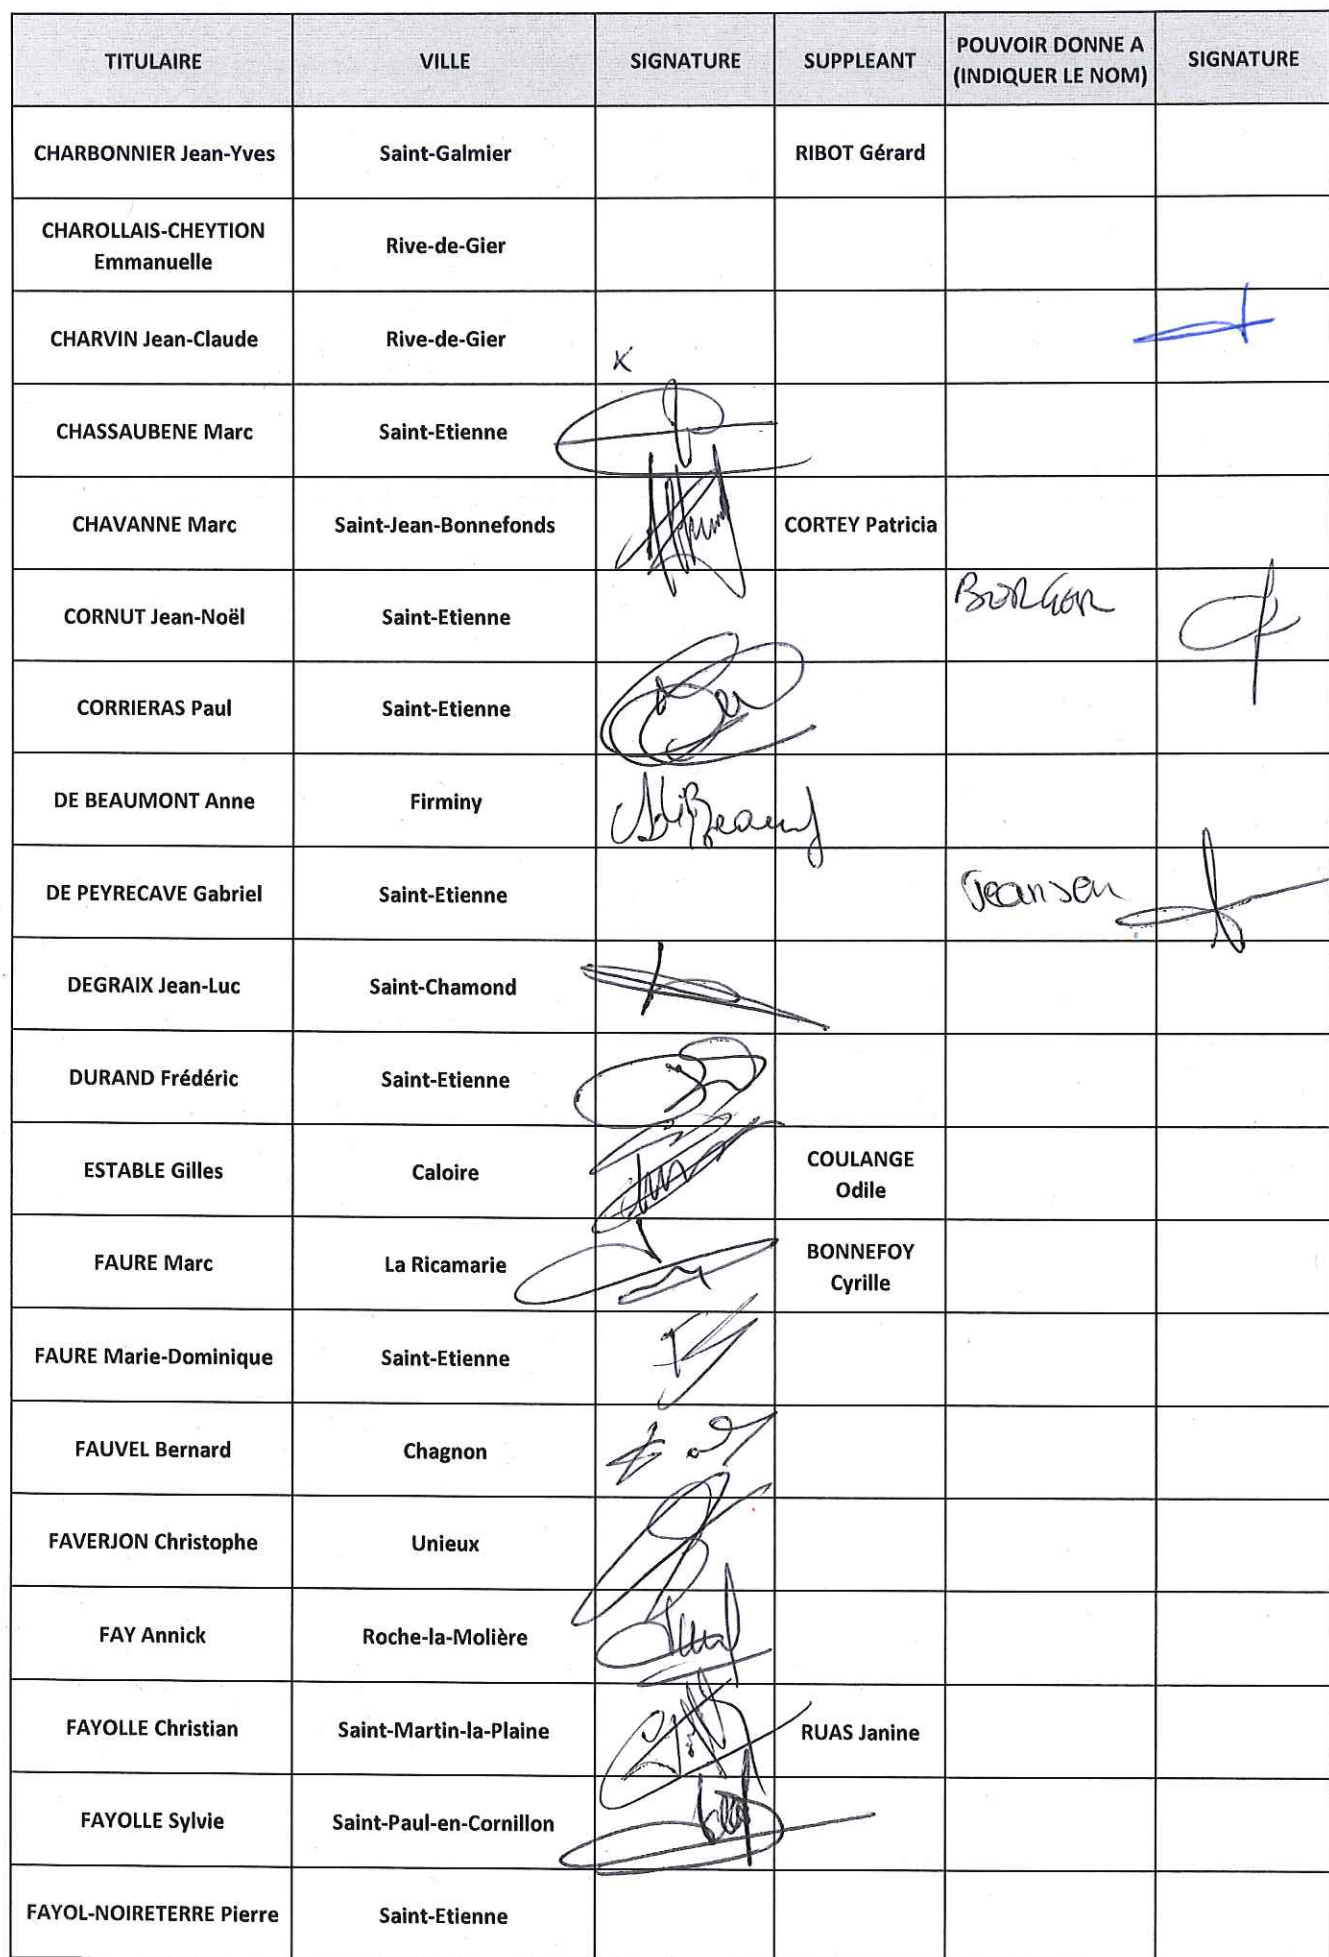 TITULAIRE
VILLE
SIGNATURE
SUPPLEANT
POUVOIR DONNE A
(INDIQUER LE NOM)
SIGNATURE
CHARBONNIER Jean-Yves
Saint-Galmier
RIBOT Gérard
CHAROLLAIS-CHEYTION
Emmanuelle
Rive-de-Gier
CHARVIN Jean-Claude
Rive-de-Gier
x
CHASSAUBENE Marc
Saint-Etienne
CHAVANNE Marc
Saint-Jean-Bonnefonds
CORTEY Patricia
CORNUT Jean-Noël
Saint-Etienne
BERGER
CORRIERAS Paul
Saint-Etienne
DE BEAUMONT Anne
Firminy
DE PEYRECAVE Gabriel
Saint-Etienne
Jeansen
DEGRAIX Jean-Luc
Saint-Chamond
DURAND Frédéric
Saint-Etienne
ESTABLE Gilles
Caloire
COULANGE
Odile
FAURE Marc
La Ricamarie
BONNEFOY
Cyrille
FAURE Marie-Dominique
Saint-Etienne
FAUVEL Bernard
Chagnon
FAVERJON Christophe
Unieux
FAY Annick
Roche-la-Molière
FAYOLLE Christian
Saint-Martin-la-Plaine
RUAS Janine
FAYOLLE Sylvie
Saint-Paul-en-Cornillon
FAYOL-NOIRETERRE Pierre
Saint-Etienne